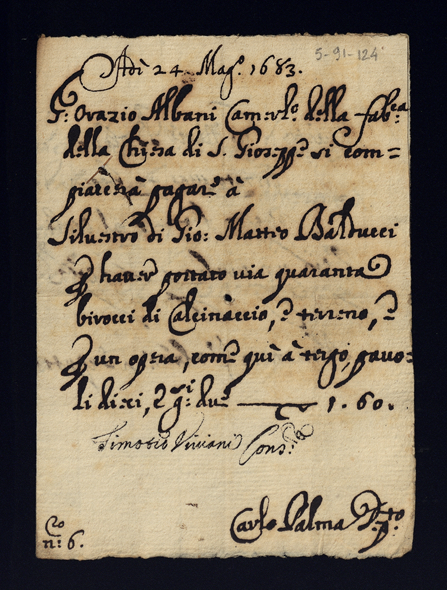 5-91-124
Adì 24 Mag.º 1683.
S.r Orazio Albani Camerl.º della fab.ca
della Chiesa di S. Gioseppe si com=
piacerà pagare à
Silvestro di Gio: Matteo Balducci
p haver portato via quaranta
birocci di Calcinaccio, e terreno, e
p un opera, come quì à tergo, pavo:
li dieci, e g.i due —— 1. 60.
Timoteo Viviani Cons.
Carlo Palma
n.º 6.